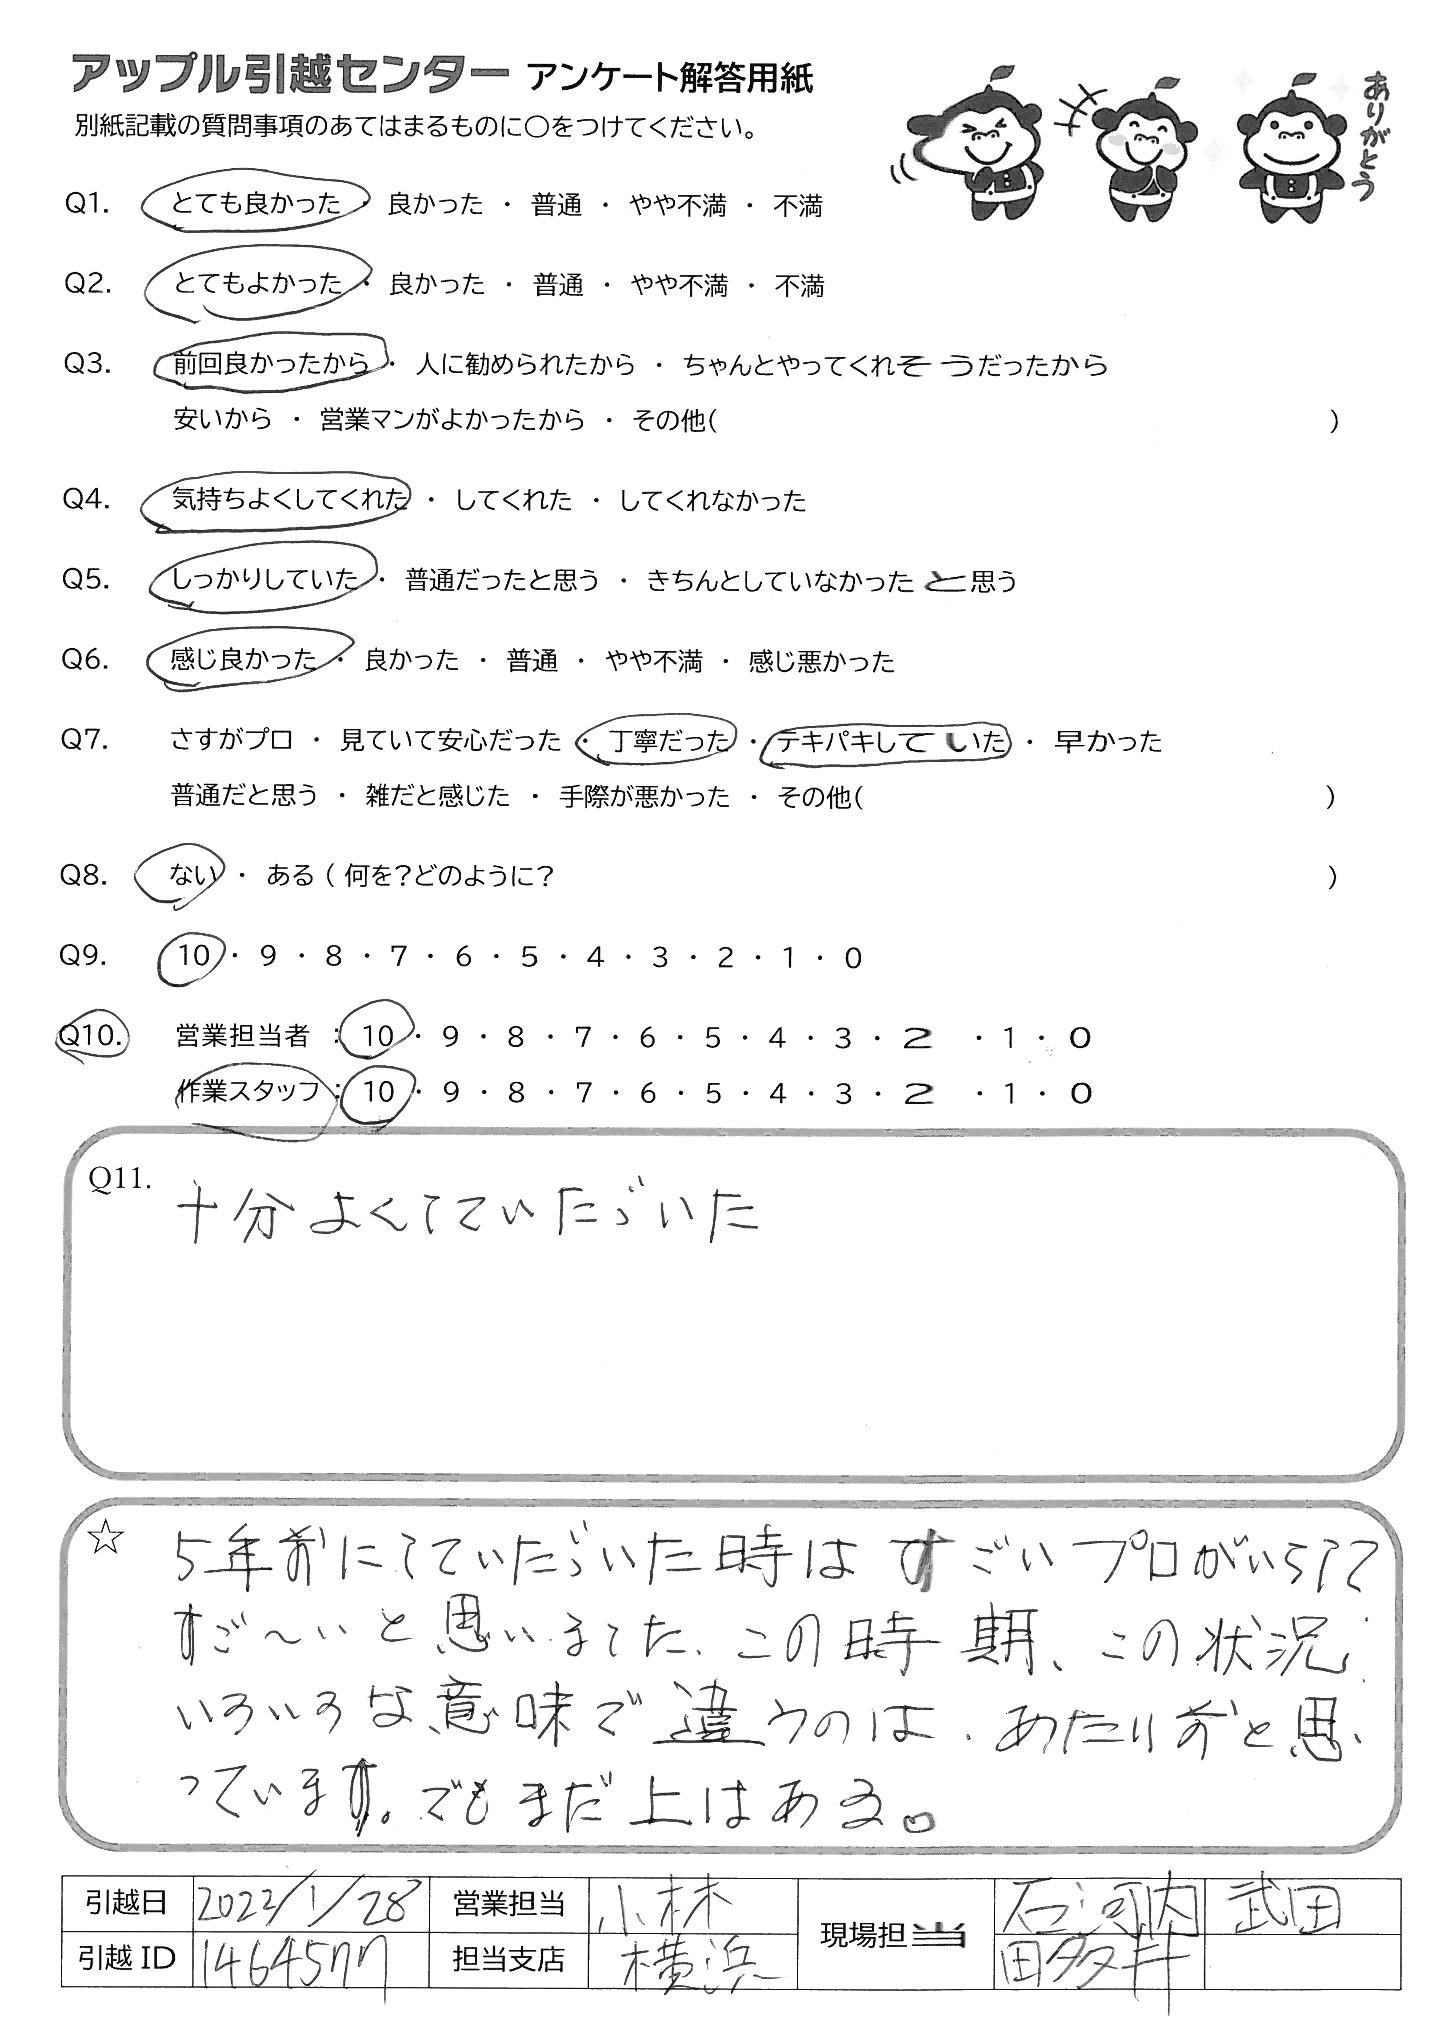 アップル引越センター アンケート解答用紙
ありがとう
別紙記載の質問事項のあてはまるものに〇をつけてください。
Q1. とても良かった ・ 良かった ・ 普通 ・ やや不満 ・ 不満
Q2. とてもよかった ・ 良かった ・ 普通 ・ やや不満 ・ 不満
Q3. 前回良かったから ・ 人に勧められたから ・ ちゃんとやってくれそうだったから
安いから ・ 営業マンがよかったから ・ その他( )
Q4. 気持ちよくしてくれた ・ してくれた ・ してくれなかった
Q5. しっかりしていた ・ 普通だったと思う ・ きちんとしていなかったと思う
Q6. 感じ良かった ・ 良かった ・ 普通 ・ やや不満 ・ 感じ悪かった
Q7. さすがプロ ・ 見ていて安心だった ・ 丁寧だった ・ テキパキしていた ・ 早かった
普通だと思う ・ 雑だと感じた ・ 手際が悪かった ・ その他( )
Q8. ない ・ ある ( 何を?どのように? )
Q9. 10 ・ 9 ・ 8 ・ 7 ・ 6 ・ 5 ・ 4 ・ 3 ・ 2 ・ 1 ・ 0
Q10. 営業担当者 : 10 ・ 9 ・ 8 ・ 7 ・ 6 ・ 5 ・ 4 ・ 3 ・ 2 ・ 1 ・ 0
作業スタッフ : 10 ・ 9 ・ 8 ・ 7 ・ 6 ・ 5 ・ 4 ・ 3 ・ 2 ・ 1 ・ 0
Q11. 十分よくしていただいた
☆ 5年前にしていただいた時は すごいプロがいらして
すご〜いと思いました、この時期、この状況、
いろいろな意味で違うのは、あたり前と思
っています。でもまだ上はある。
引越日 2022/1/28 営業担当 小林 現場担当 石河内 武田
引越ID 1464577 担当支店 横浜 田多井